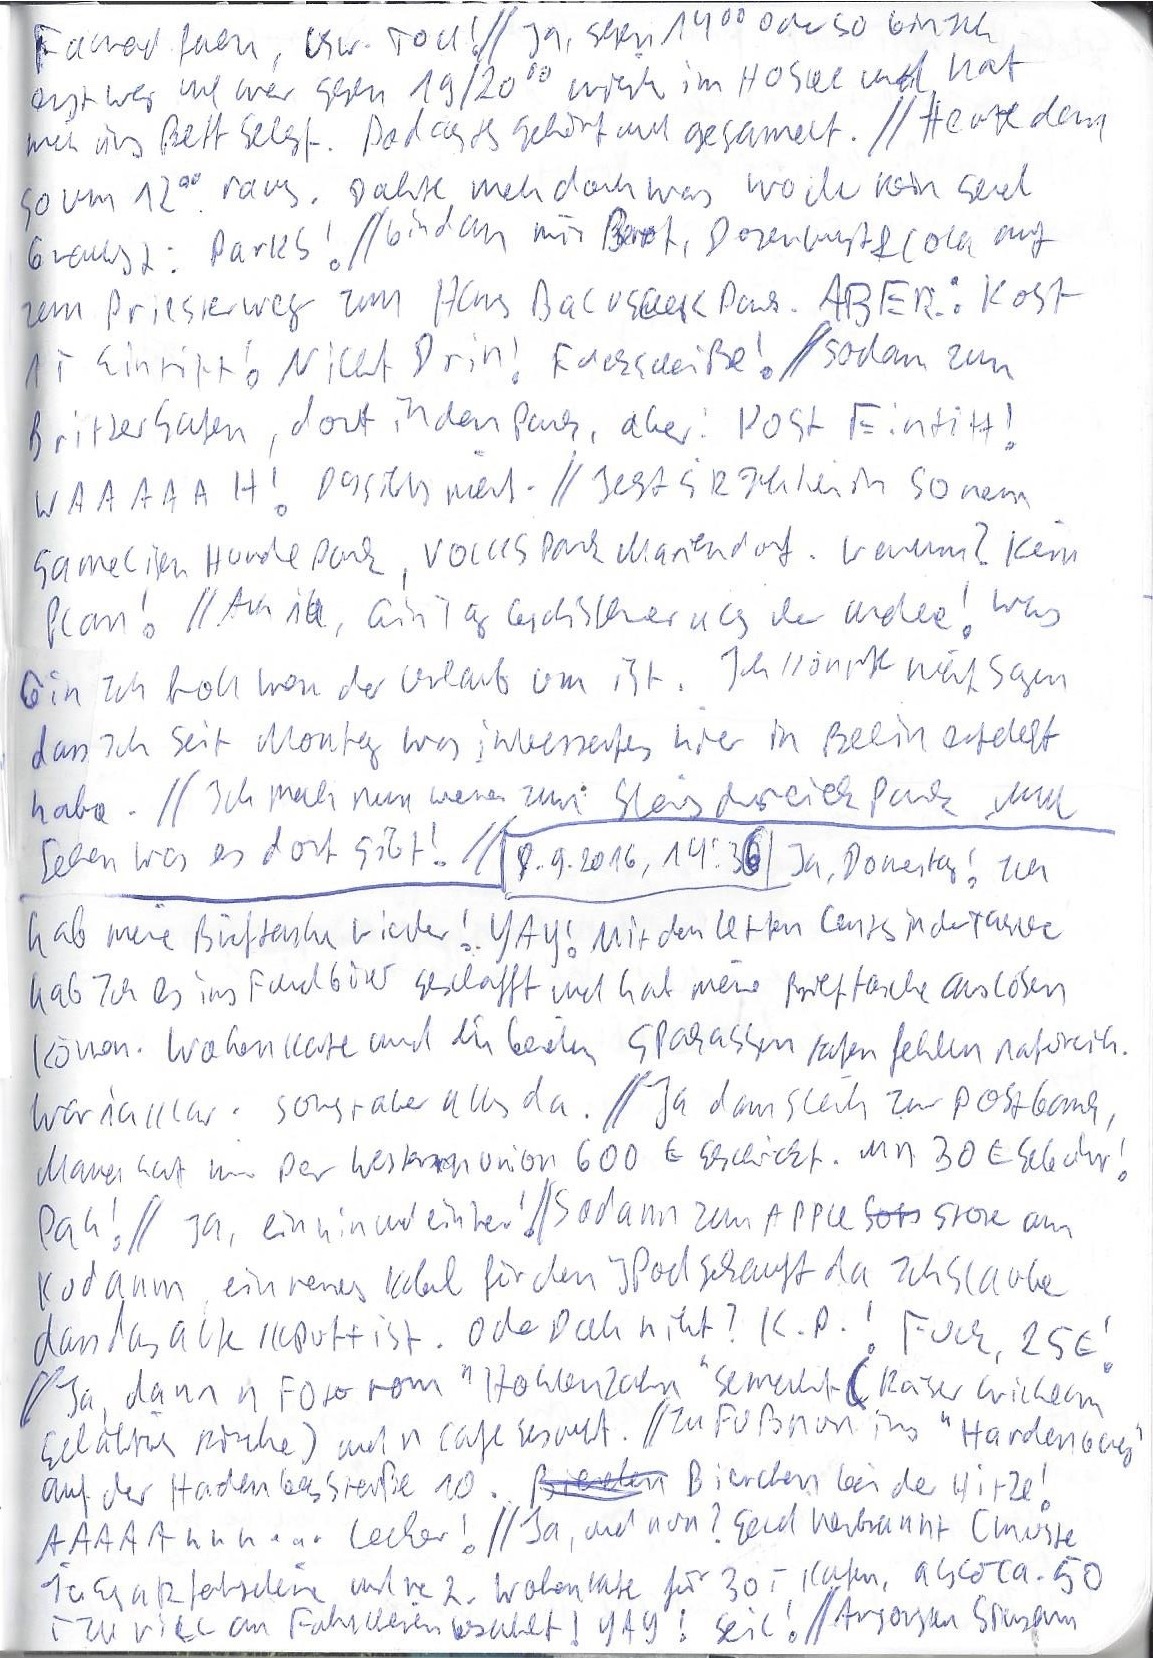 Fahrrad fahren, usw. Toll! // Ja, gegen 14⁰⁰ oder so bin ich
erst weg und war gegen 19/20⁰⁰ wieder im Hostel und hab
mich ins Bett gelegt. Podcasts gehört und gegammelt. // Heute dann
so um 12⁰⁰ raus. Dachte, mach doch was wo du kein Geld
brauchst: Parks! // bin dann mit Brot, Dosenwurst & Cola auf
zum Priesterweg zum Hans Park. ABER: Kost
1 € Eintritt! Nicht Drin! Fuckscheiße! // Sodann zum
Britzer Garten, dort in den Park, aber: Kost Eintritt!
WAAAAAH! Das gibts nicht. // Jetzt sitz ich hier in so nem
gammeligen Hunde Park, Volkspark Mariendorf. Warum? Kein
Plan! // Ach ja, ein Tag beschissener als der andere! Was
bin ich froh wenn der Urlaub um ist. Ich könnte nicht sagen
dass ich seit Montag was interessantes hier in Berlin erlebt
habe. // Ich mach nun weiter zum Gleisdreieck Park und
sehen was es dort gibt! // 8.9.2016, 14:36 Ja, Donnerstag! Ich
hab meine Brieftasche wieder! YAY! Mit den letzten Cents in der Tasche
hab ich es ins Fundbüro geschafft und hab meine Brieftasche auslösen
können. Wochenkarte und die beiden Sparkassen Karten fehlen natürlich.
War ja klar. Sonst aber alles da. // Ja dann gleich zur Postbank,
Mama hat mir per Western Union 600 € geschickt. Um 30 € Gebühr!
Pah! // Ja, ein hin und ein her! // Sodann zum APPLE Store am
Kudamm, ein neues Kabel für den IPod gekauft da ich glaube
dass das alte kaputt ist. Oder Doch nicht? K.P.! Fuck, 25€!
// Ja, dann n Foto vom "Hohlen Zahn" gemacht (Kaiser Wilhelm
Gedächtnis Kirche) und n Cafe gesucht. // Zu Fuß nun ins "Hardenberg"
auf der Hardenbergstraße 10. Bierchen bei der Hitze!
AAAAAhhh... Lecker! // Ja, und nun? Geld verbrannt (musste
Tagesfahrscheine und ne 2. Wochenkarte für 30 € kaufen, also ca. 50
€ zu viel an Fahrscheinen bezahlt! YAY! Geil! //